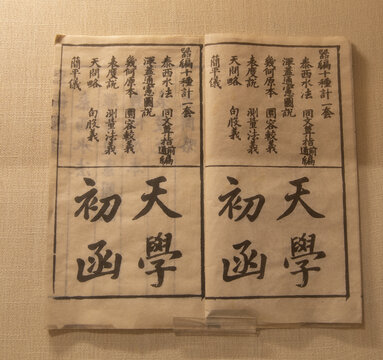 器編十種計一套
泰西水法　同文算指通編前編
渾蓋通憲圖說
幾何原本　圜容較義
表度說　測量法義
天問略　句股義
簡平儀
天學
初函
器編十種計一套
泰西水法　同文算指通編前編
渾蓋通憲圖說
幾何原本　圜容較義
表度說　測量法義
天問略　句股義
簡平儀
天學
初函